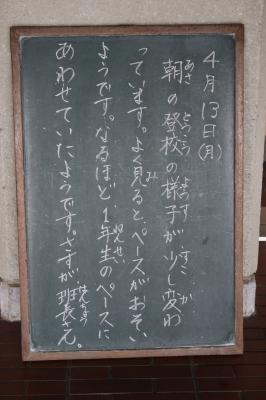 4月13日(月)
朝の登校の様子が少し変わ
っています。よく見ると、ペースがおそい
ようです。なるほど、1年生のペースに
あわせていたようです。さすが班長さん。